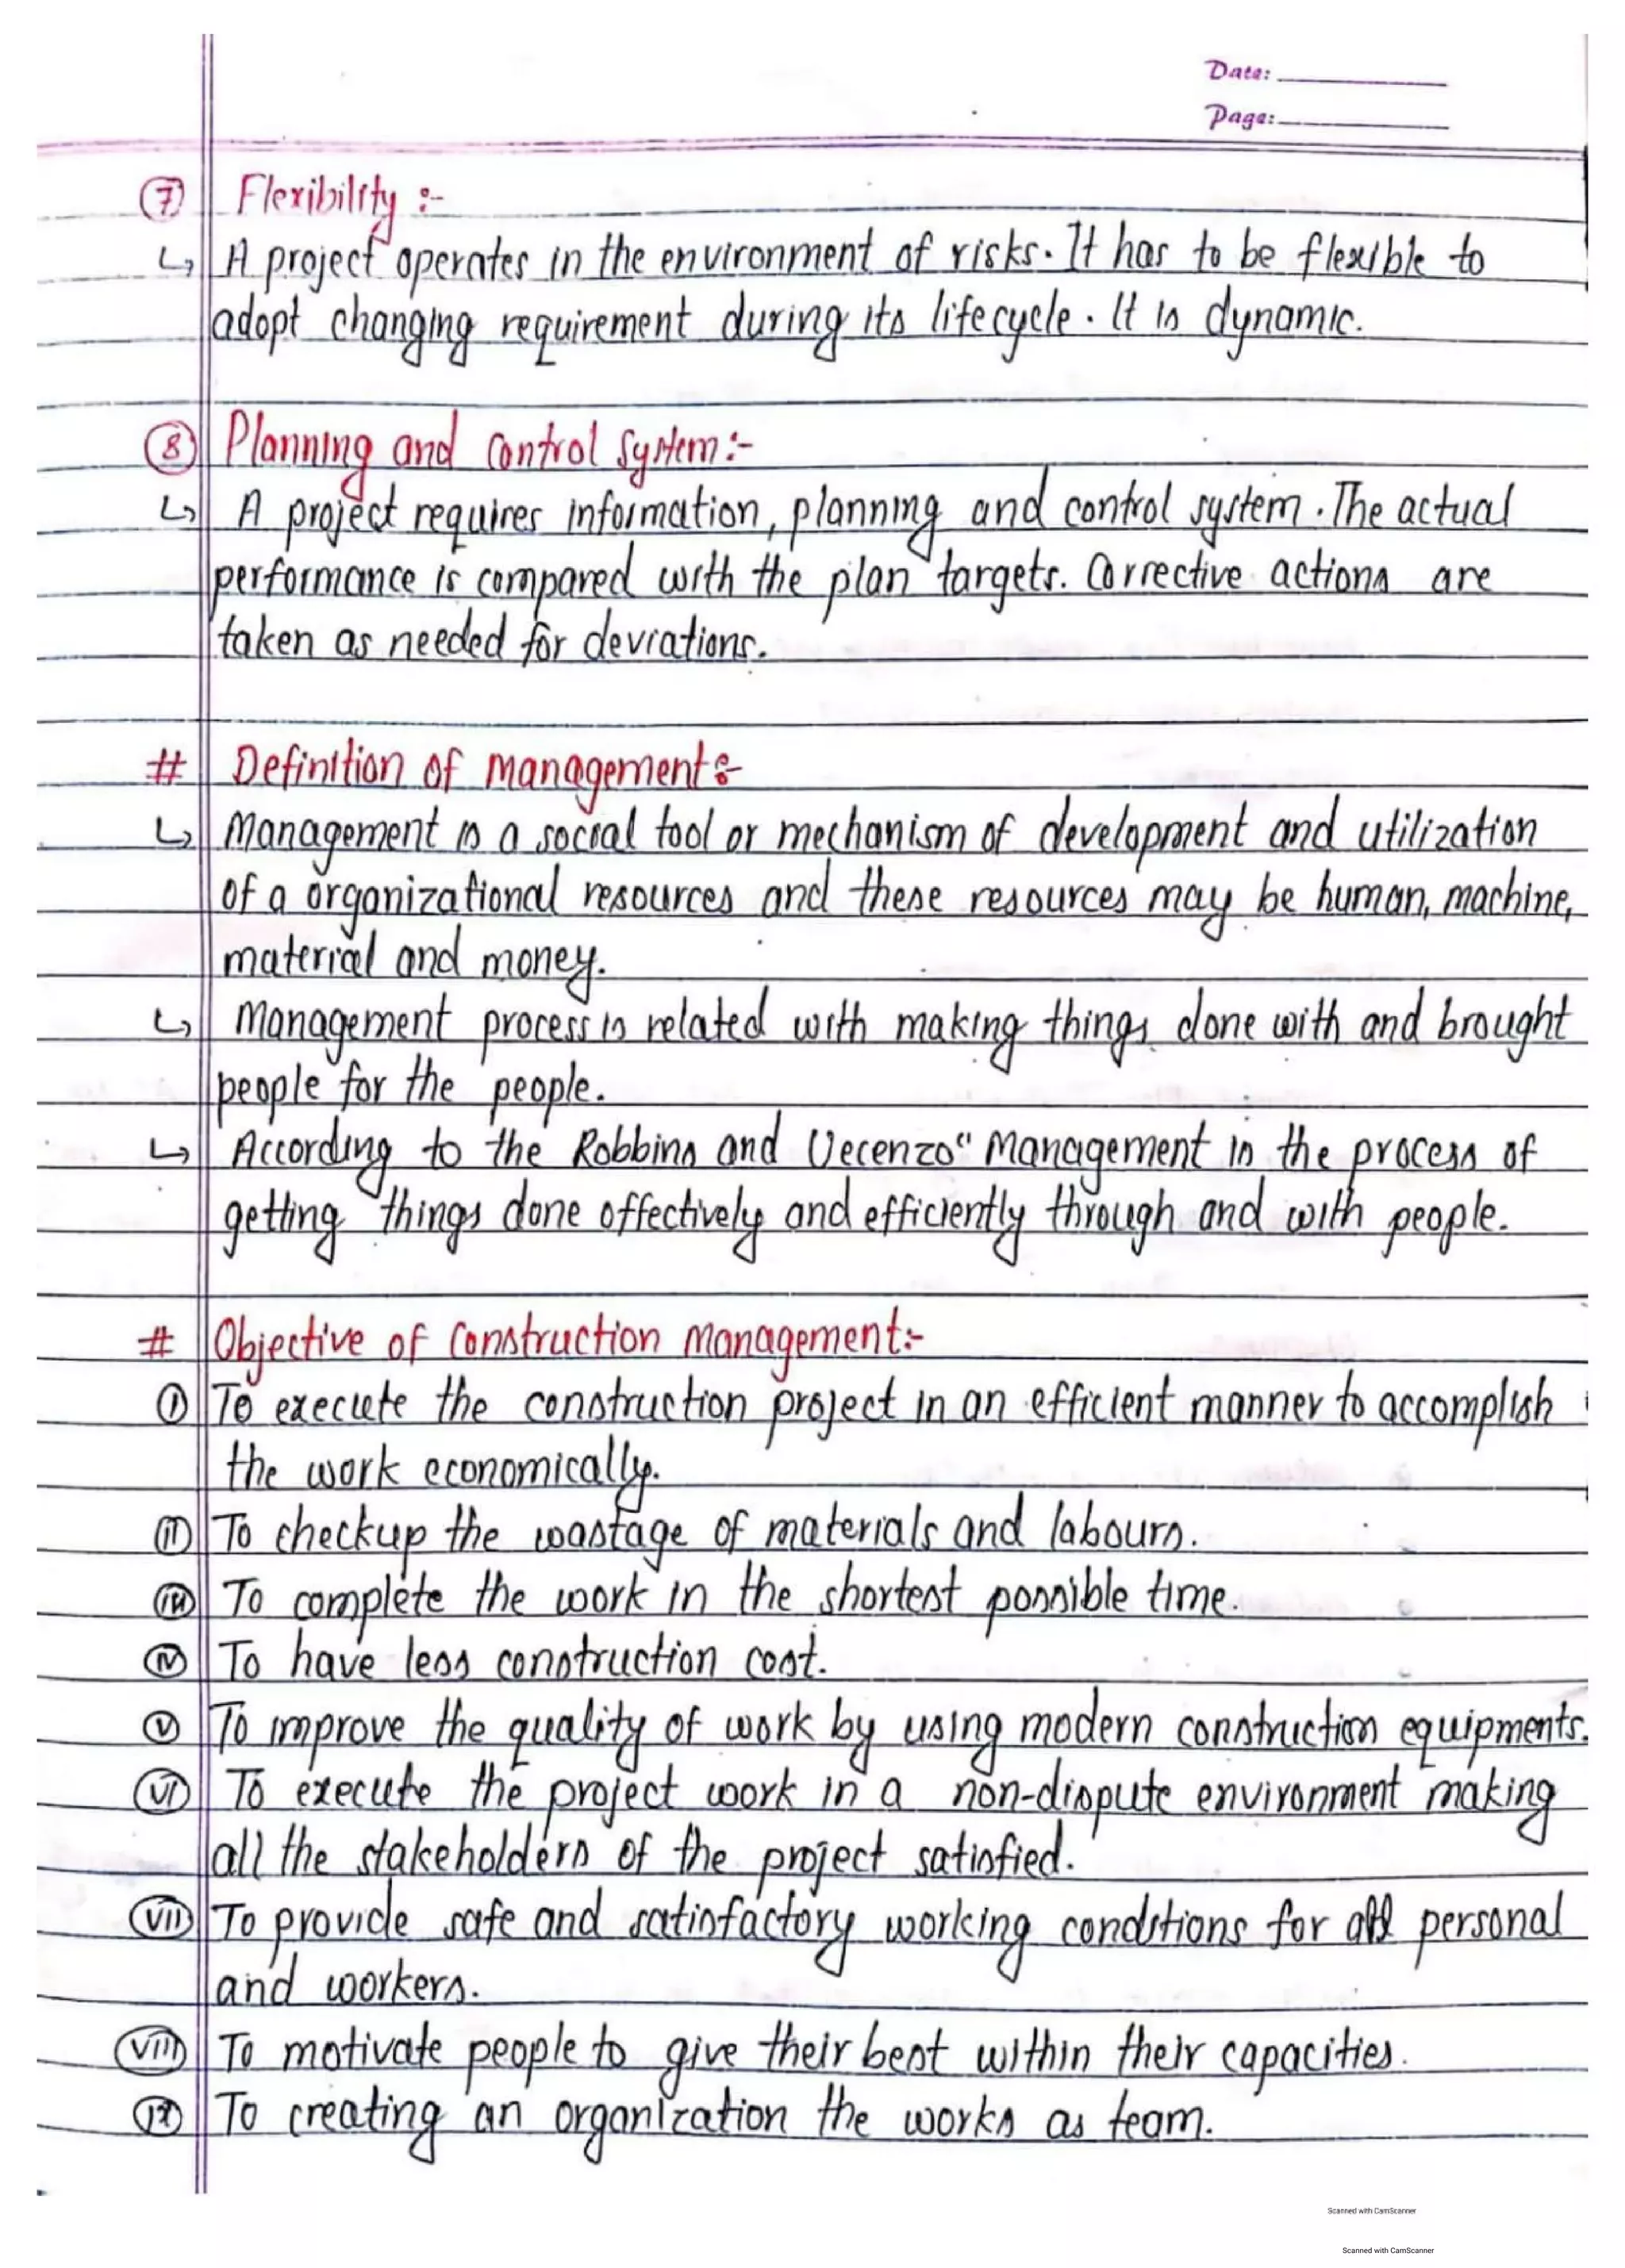 Date:
Page:
7 Flexibility :-
↳ A project operates in the environment of risks. It has to be flexible to
adopt changing requirement during its lifecycle. It is dynamic.
8 Planning and control system:-
↳ A project requires information, planning and control system. The actual
performance is compared with the plan targets. Corrective actions are
taken as needed for deviations.
# Definition of management:-
↳ Management is a social tool or mechanism of development and utilization
of a organizational resources and these resources may be human, machine,
material and money.
↳ Management process is related with making things done with and brought
people for the people.
↳ According to the Robbins and Vecenzo "Management is the process of
getting things done effectively and efficiently through and with people.
# Objective of Construction management:-
i To execute the construction project in an efficient manner to accomplish
the work economically.
ii To checkup the wastage of materials and labours.
iii To complete the work in the shortest possible time.
iv To have less construction cost.
v To improve the quality of work by using modern construction equipments.
vi To execute the project work in a non-dispute environment making
all the stakeholders of the project satisfied.
vii To provide safe and satisfactory working conditions for all personal
and workers.
viii To motivate people to give their best within their capacities.
ix To creating an organization the works as team.
Scanned with CamScanner
Scanned with CamScanner